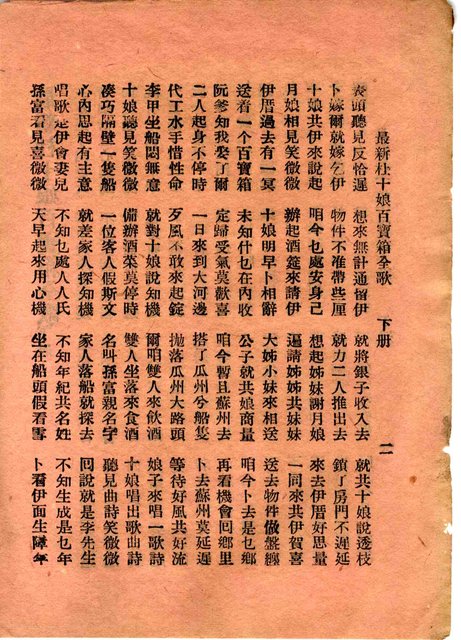 最新杜十娘百寶箱全歌 下册 二
表頭聽見反恰遲 想來無計通留伊 就將銀子收入去 就共十娘說透枝
卜嫁爾就嫁乞伊 物件不准帶些厘 就力二人推出去 鎖了房門不遲延
十娘共伊來說起 咱今乜處安身己 想起姊妹謝月娘 來去伊厝好思量
月娘相見笑微微 辦起酒筵來請伊 逼請姊姊共妹妹 一同來共伊賀喜
伊厝過去有一冥 十娘明早卜相辭 大姊小妹來相送 送去物件做盤纏
送看一个百寶箱 未知什乜在內收 公子就共娘商量 咱今卜去是乜鄉
阮爹知我娶了爾 定歸受氣莫歡喜 咱今暫且蘇州去 再看機會囘鄉里
二人起身不停時 一日來到大河邊 搭了瓜州兮船隻 卜去蘇州莫延遲
代工水手惜性命 歹風不敢來起錠 拋落瓜州大路頭 等待好風共好流
李甲坐船悶無意 就對十娘說知機 爾唱雙人來飲酒 娘子來唱一歌詩
十娘聽見笑微微 備辦酒菜莫停時 雙人坐落來食酒 十娘唱出歌曲詩
湊巧隔壁一隻船 一位客人假斯文 名叫孫富親名字 聽見曲詩笑微微
心內思起有主意 就差家人探知機 家人落船就探去 囘說就是李先生
唱歌是伊會妻兒 不知乜處人人氏 不知年紀共名姓 不知生成是乜年
孫富看見喜微微 天早起來用心機 坐在船頭假看雪 卜看伊面生障年